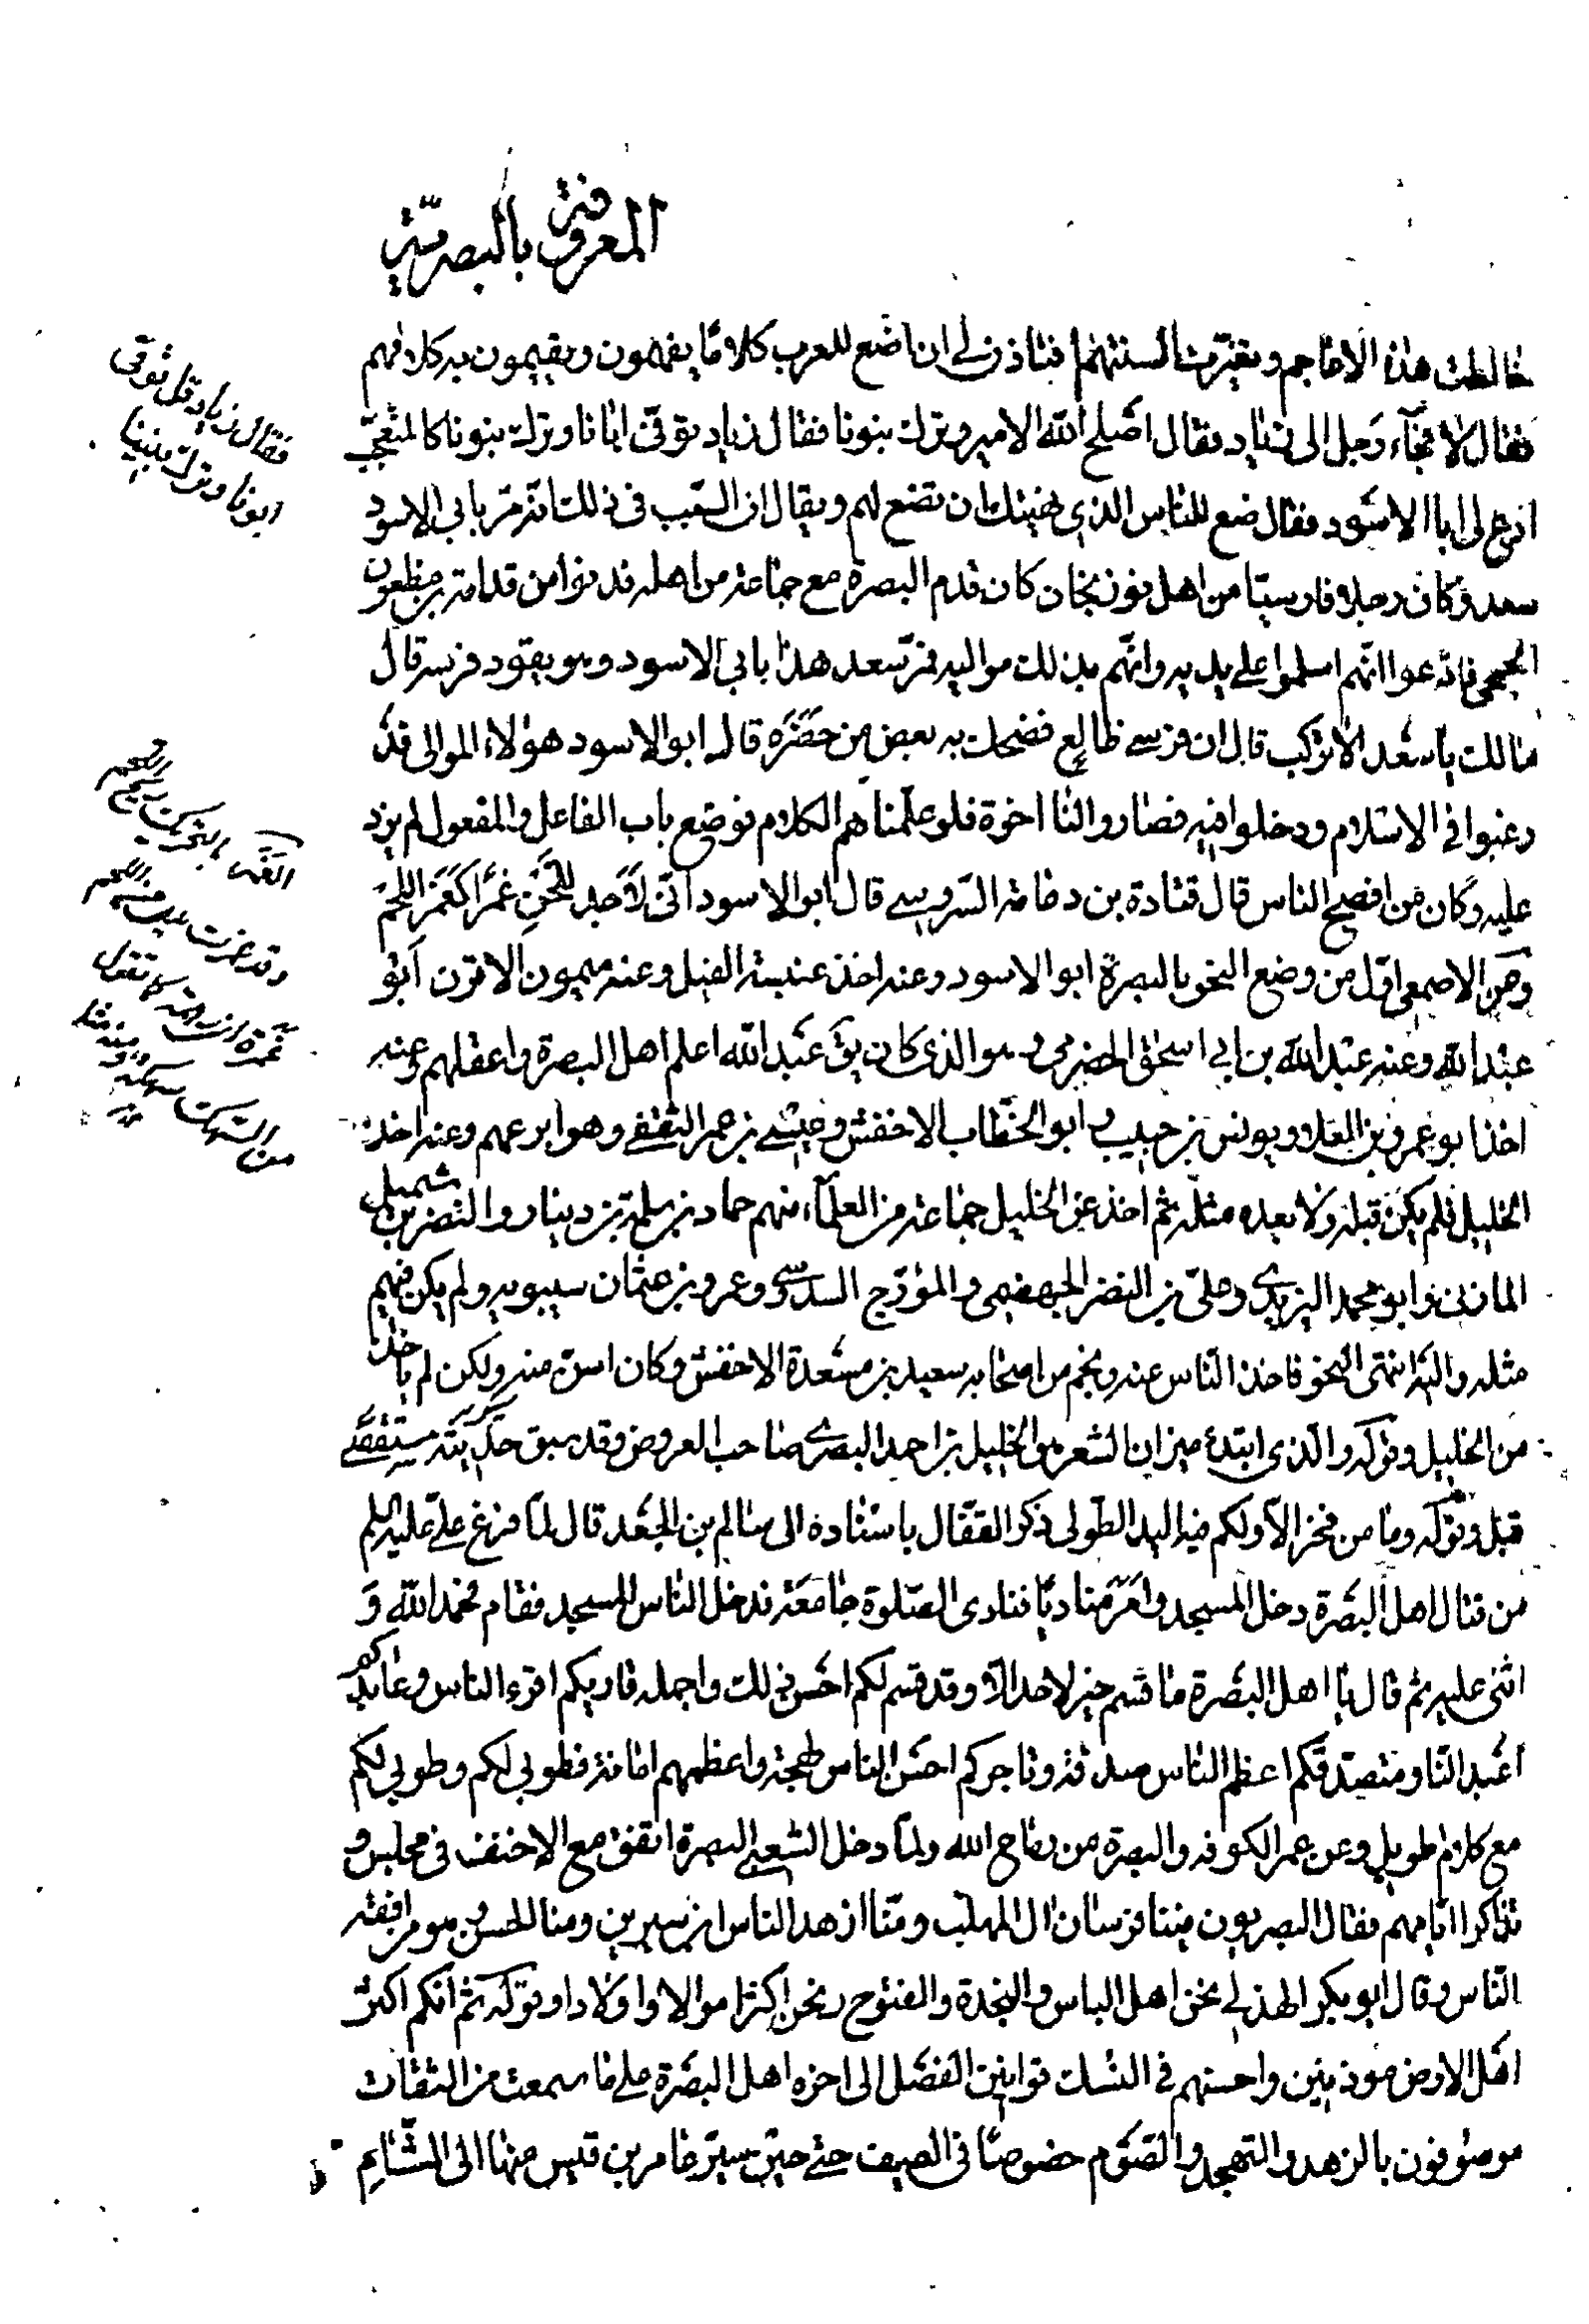 المعروفة بالبصريّة
خالطت هذه الاعاجم وتغيّرت السنتهم افتاذن لي ان اضع للعرب كلامًا يفهمون ويقيمون به كلامهم
فقال لا فجآء رجل الى زياد فقال اصلح الله الامير وترك بنونا فقال زياد توفّى ابانا وترك بنونا كالمتعجّب
ادع لي ابا الاسود فقال ضع للناس الذي نهيتك ان تضع لهم ويقال ان السبب في ذلك انه مرّ بابي الاسود
سعد وكان رجلا فارسيّا من اهل بوزنجان كان قدم البصرة مع جماعة من اهله فدنوا من قدامة بن مظعون
الجمحي فادّعوا انّهم اسلموا على يديه وانّهم بذلك مواليه فمرّ سعد هذا بابي الاسود وهو يقود فرسه قال
مالك يا سعد الا تركب قال ان فرسي ظالع فضحك به بعض من حضره قال ابو الاسود هؤلاء الموالي قد
رغبوا في الاسلام ودخلوا فيه فصاروا لنا اخوة فلو علّمناهم الكلام فوضع باب الفاعل والمفعول لم يزد
عليه وكان من افصح الناس قال قتادة بن دعامة السدوسي قال ابو الاسود انّي لاجد للّحن غمرًا كغمر اللحم
وعن الاصمعي اوّل من وضع النحو بالبصرة ابو الاسود وعنه اخذ عنبسة الفيل وعنه ميمون الاقرن ابو
عبد الله وعنه عبد الله بن ابي اسحق الحضرمي وهو الذي كان يق عبد الله اعلم اهل البصرة واعقلهم وعنه
اخذ ابو عمرو بن العلاء ويونس بن حبيب وابو الخطّاب الاخفش وعيسى بن عمر الثقفي وهو ابرعهم وعنه اخذ
الخليل فلم يكن قبله ولا بعده مثله ثم اخذ عن الخليل جماعة من العلمآء منهم حماد بن سلمة بن دينار والنضر بن شميل
المازني وابو محمد اليزيدي وعليّ بن النضر الجهضمي والمؤرّج السدوسي وعمرو بن عثمان سيبويه ولم يكن فيهم
مثله واليه انتهى النحو فاخذ الناس عنه ونجم من اصحابه سعيد بن مسعدة الاخفش وكان اسنّ منه ولكن لم ياخذ
من الخليل وقوله والّذي ابتدع ميزان الشعر هو الخليل بن احمد البصري صاحب العروض وقد سبق حكايته مستقصى
قبل وقوله وما من فخر الا ولكم فيه اليد الطّولى ذكر القفّال باسناده الى سالم بن الجعد قال لمّا فرغ عليّ عليه السلم
من قتال اهل البصرة دخل المسجد وامر مناديًا فنادى الصلوة جامعة فدخل الناس المسجد فقام فحمد الله و
اثنى عليه ثم قال يا اهل البصرة ما قسم خير لاحد الا وقد قسم لكم احسن ذلك واجمله قاريكم اقرء الناس وعابدكم
اعبد النّاس ومتصدّقكم اعظم الناس صدقة وتاجركم احسن الناس لهجة واعظمهم امانة فطوبى لكم وطوبى لكم
مع كلام طويل وعن عمر الكوفه والبصرة من رماح الله ولمّا دخل الشعبي البصرة اتفق مع الاحنف في مجلس و
تذاكرا ايّامهم فقال البصريون منّا فرسان ال المهلب ومنّا ازهد الناس ابن سيرين ومنا الحسن وهو من افقه
النّاس وقال ابو بكر الهذلي نحن اهل الباس والنجدة والفتوح ونحن اكثر اموالا واولادا وقوله ثم انكم اكثر
اهل الارض موذنين واحسنهم في النسك قوانين الفصل الى اخره اهل البصرة على ما سمعت من الثقات
موصوفون بالزهد والتهجد والصوم خصوصًا في الصيف حتى حين سيّر عامر بن قيس منها الى الشام
فقال زياد قل توفى
ابونا وترك بنينا
الغمر بالتحريك ريح اللحم
وقد غمرت يدي من اللحم
غمرة اي زهمة كما تقول
من السهك سهكة ومنه منديل
الغمر